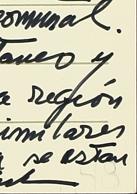 comunal.
taneo y
a región
similares
n se estan